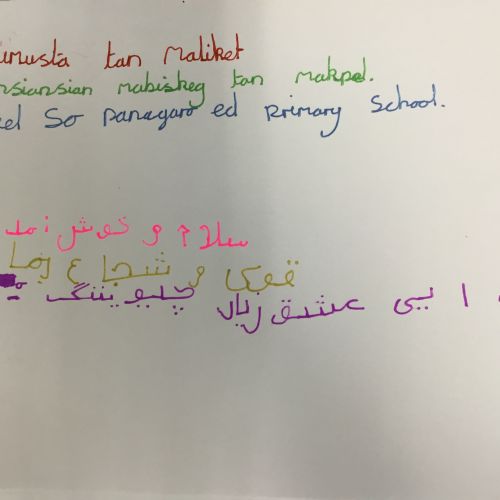 umusta tan maliket
nsiansian mabiskeg tan makpel.
el so panagaro ed Primary School.
سلام و خوش آمد
قوی و شجاع بما
ایی عشق زیاد چلیوینگ